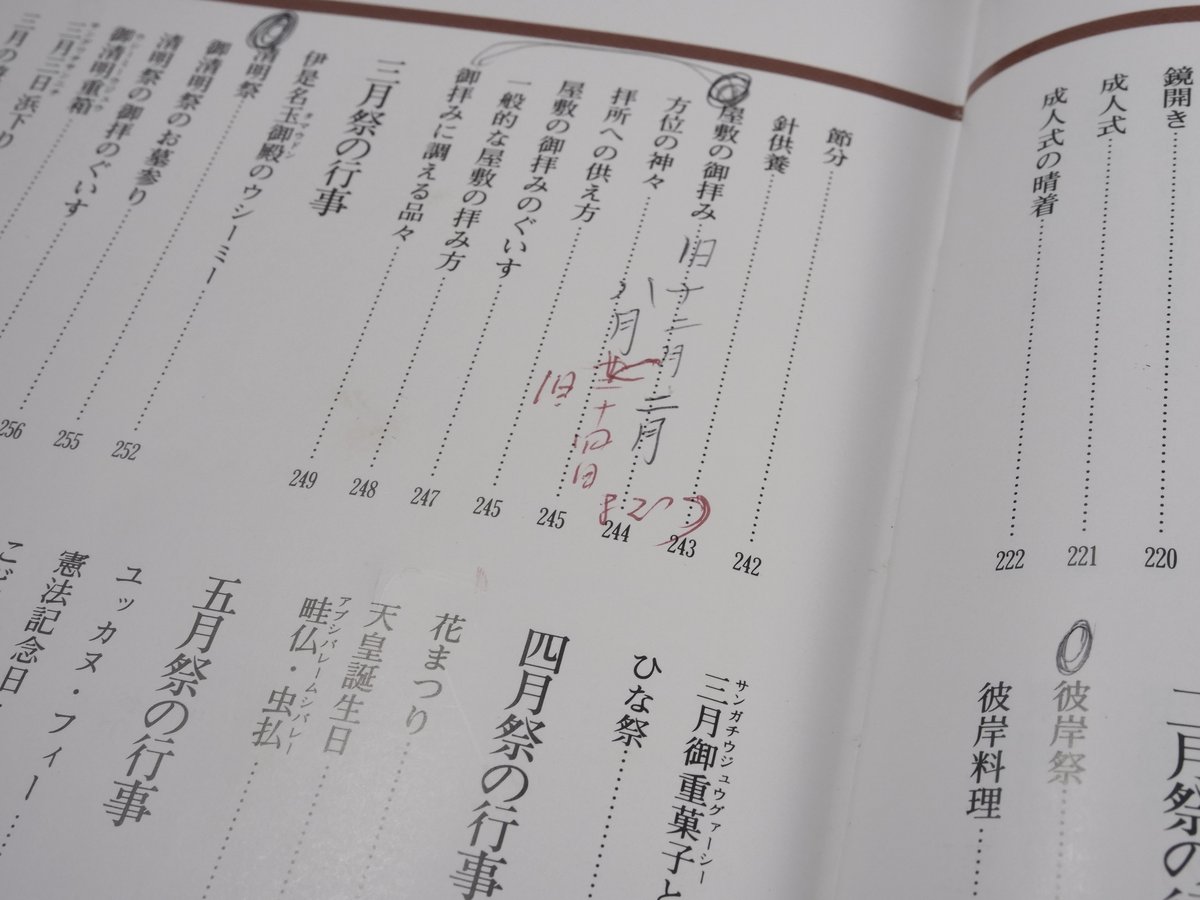 鏡開き……220
成人式……221
成人式の晴着……222
彼岸祭
彼岸料理
節分……242
針供養……243
屋敷の御拝み……244
旧十二月二月
八月
旧
二十四日
まで
方位の神々……245
拝所への供え方……245
屋敷の御拝みのぐいす……247
一般的な屋敷の拝み方……248
御拝みに調える品々……249
三月祭の行事
伊是名玉御殿のウシーミー……252
タマウドン
清明祭……255
御清明祭……256
清明祭のお墓参り
清明祭の御拝のぐいす
御清明重箱
三月三日浜下り
三月御重菓子と
サンガチウジュウグァーシー
ひな祭
四月祭の行事
花まつり
天皇誕生日
畦仏・虫払
アブシバレームシバレー
五月祭の行事
ユッカヌ・フィー
憲法記念日